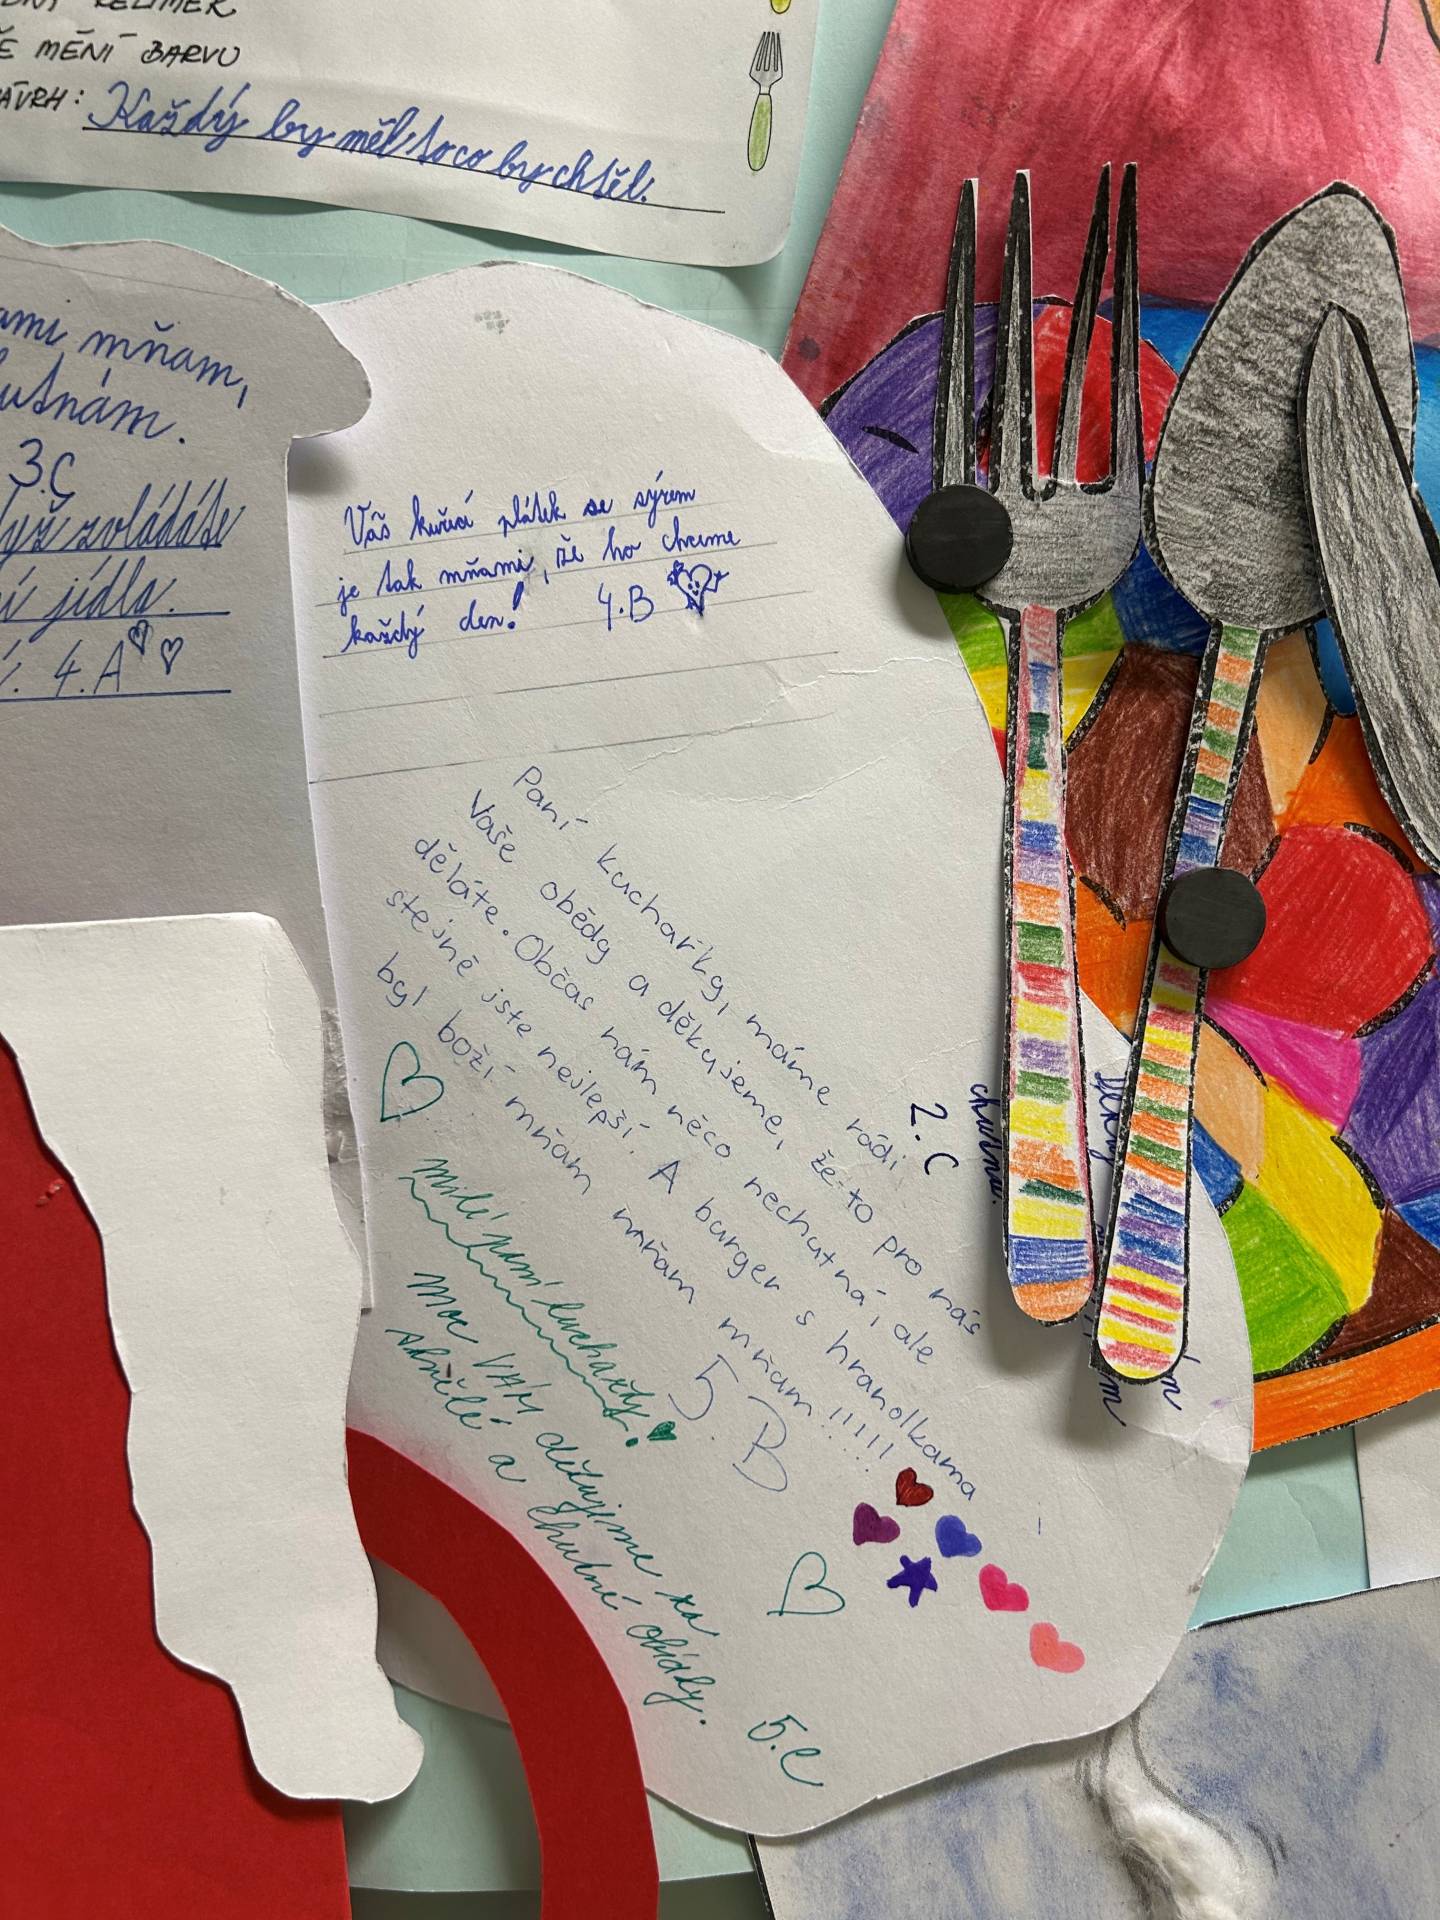 MĚNÍ BARVU
Každý by měl to co by chtěl.
mňam,
3.C
zvládáte
jídla.
4.A
Váš kuřecí plátek se sýrem
je tak mňami, že ho chceme
každý den! 4.B
Paní kuchařky, máme rádi
Vaše obědy a děkujeme, že to pro nás
děláte. Občas nám něco nechutná, ale
stejně jste nejlepší. A burger s hranolkama
byl boží mňam mňam mňam!!!!!
5B
2.C
chutná.
Milé paní kuchařky!
Moc VÁM děkujeme za
skvělé a chutné obědy.
5.C